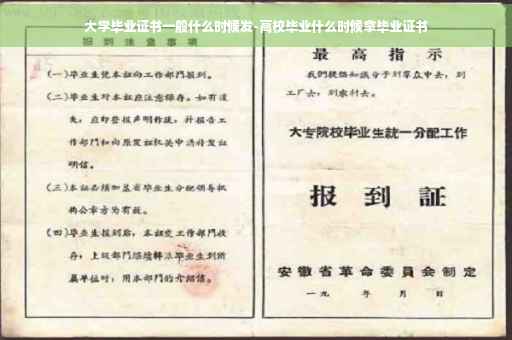 大学毕业证书一般什么时候发-高校毕业什么时候拿毕业证书
报到注意事项
(一)毕业生凭本证向工作部門报到。
(二)毕业生对本证应注意保存。如有遺
失,应即登报声明作废,并报告工
作部門和向原发证机关申請补发证
明信。
(三)本证必须加盖省毕业生分配領导机
构公章方为有效。
(四)毕业生报到后,本证交工作部門收
存;上级部門
毕业生到所
属单位时,用本部門的介紹信。
最高指示
我們提倡知識分子到羣众中去,到
工厂去,到农村去。
大专院校毕业生統一分配工作
报到証
安徽省革命委員会制定
一九 年 月 日